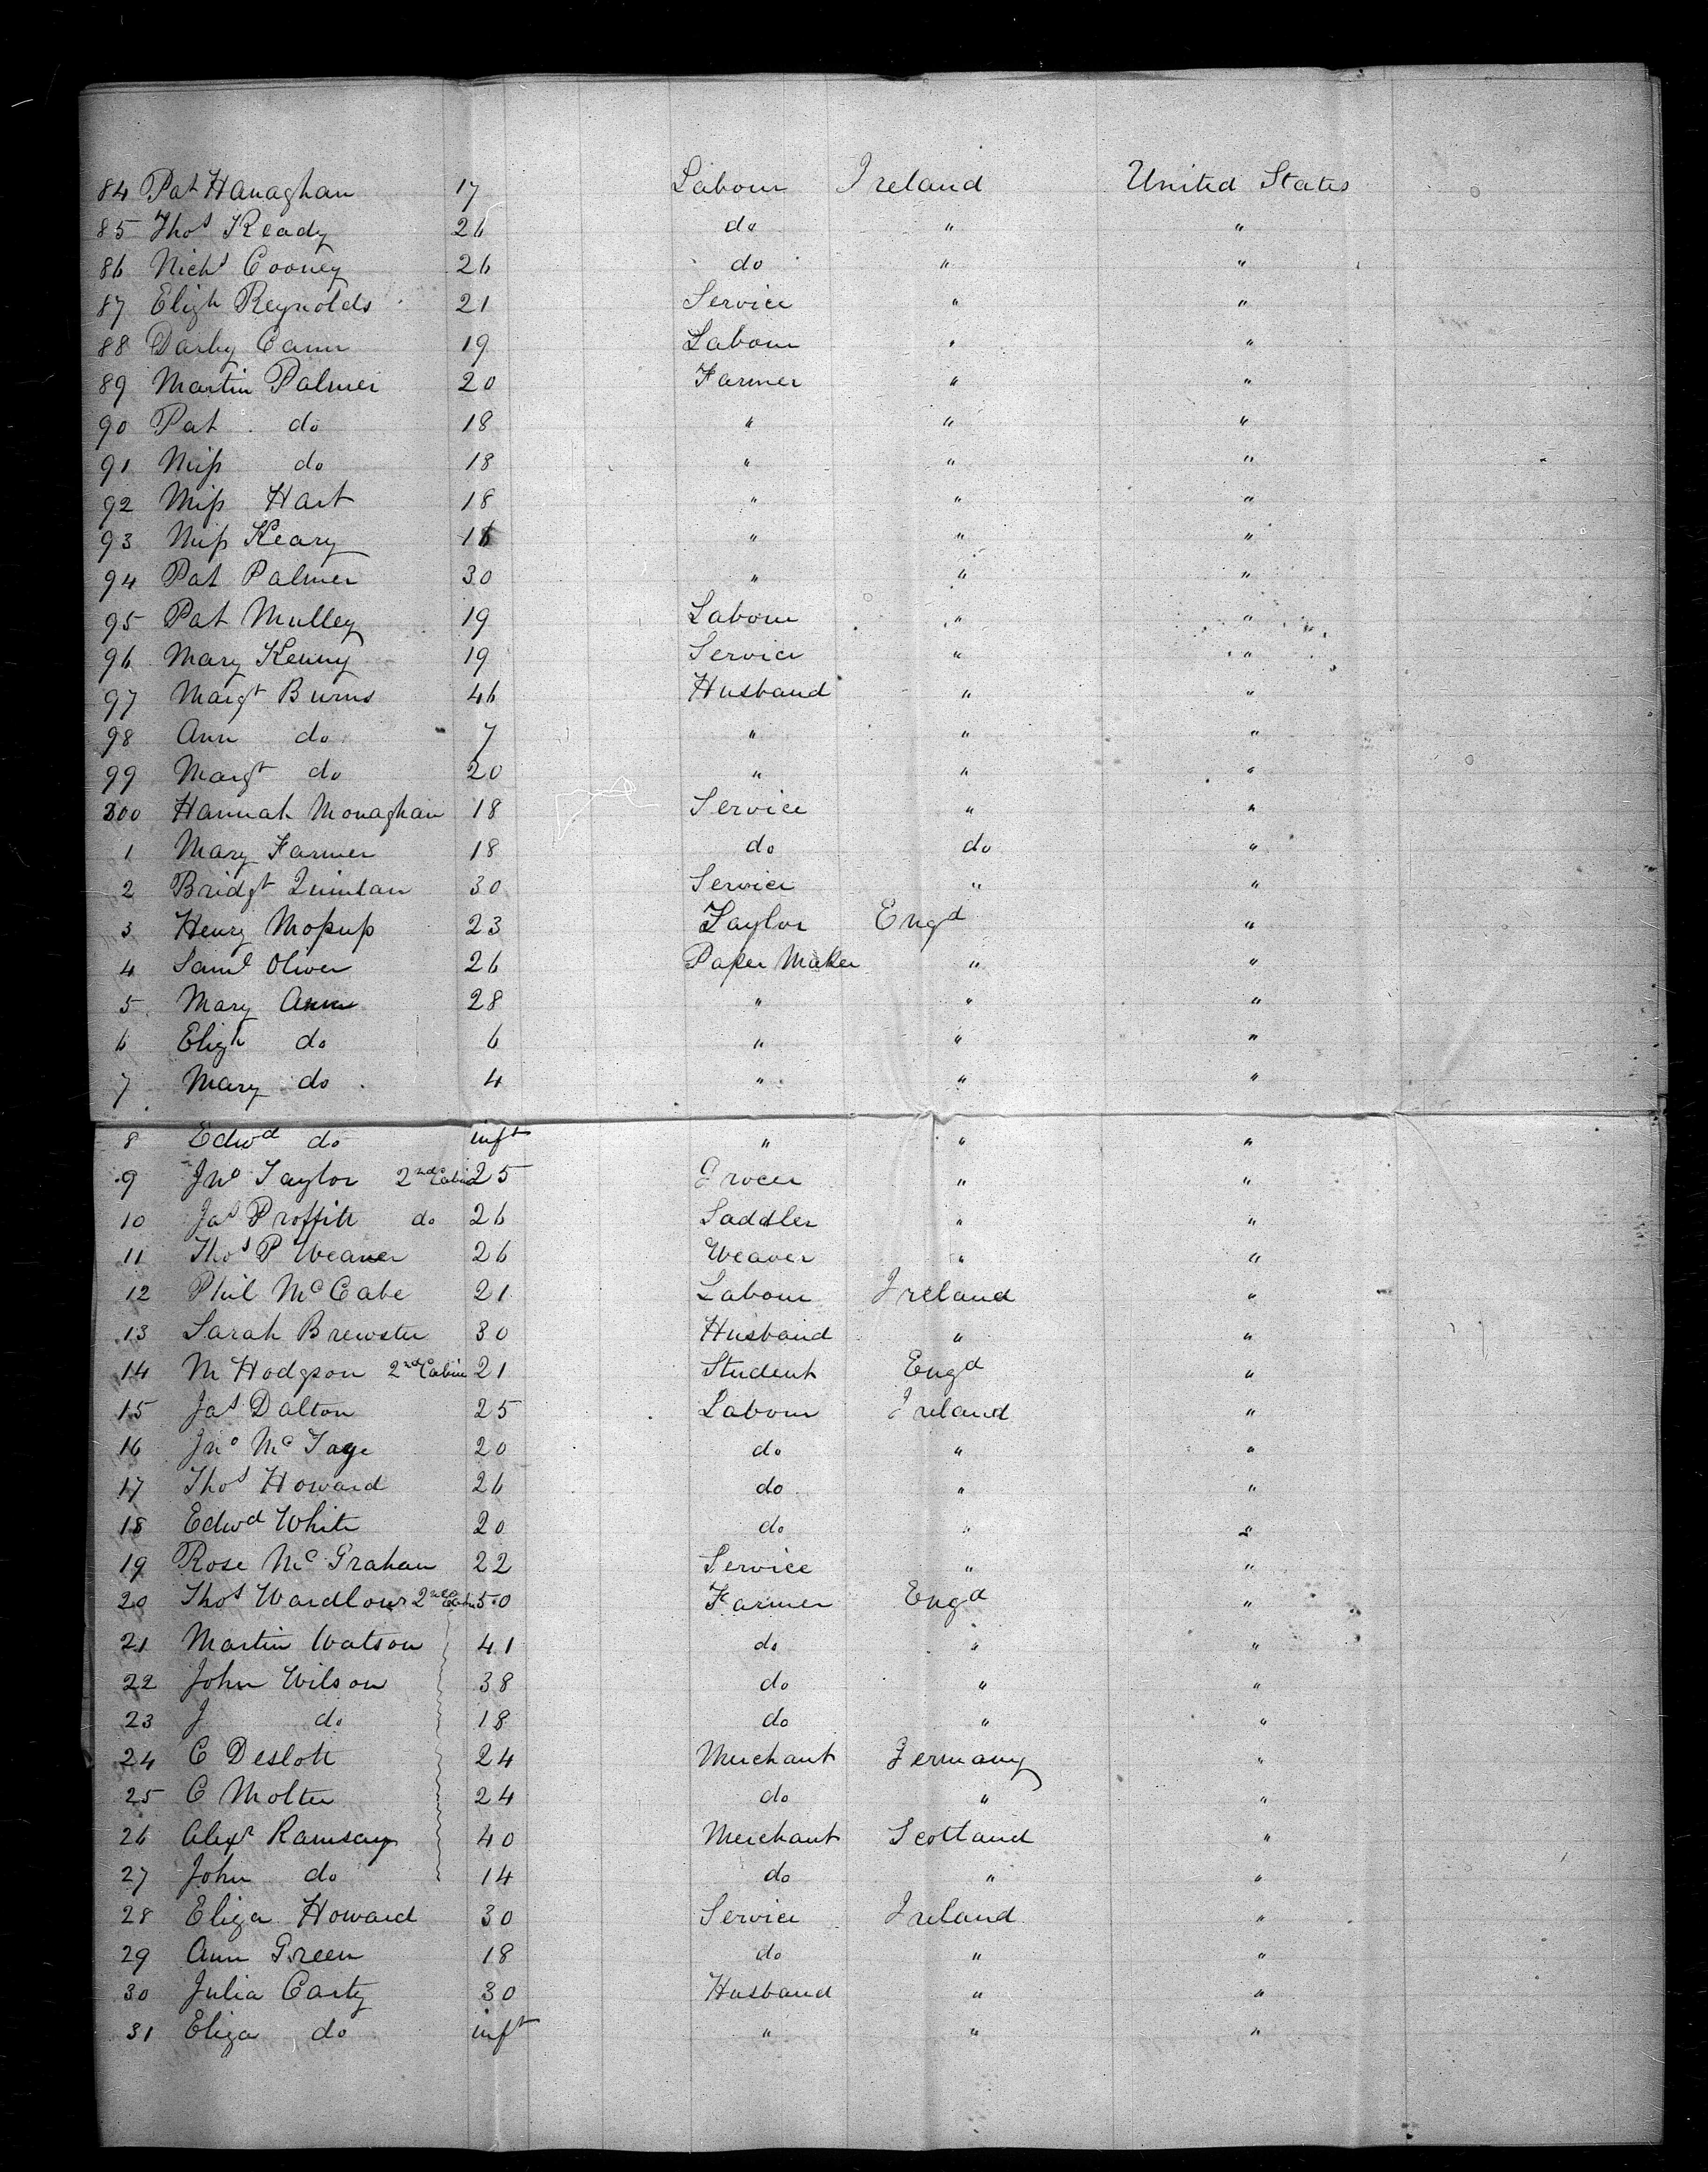 84 Pat Hanaghan 17 Labour Ireland United States
85 Thos Ready 26 do " "
86 Nichs Cooney 26 do " "
87 Elizh Reynolds 21 Service " "
88 Darby Cann 19 Labour " "
89 Martin Palmer 20 Farmer " "
90 Pat do 18 " " "
91 Miss do 18 " " "
92 Miss Hart 18 " " "
93 Miss Keary " " "
94 Pat Palmer 30 " " "
95 Pat Mulley 19 Labour " "
96 Mary Kenny 19 Service " "
97 Margt Burns 46 Husband " "
98 Ann do 7 " " "
99 Margt do 20 " " "
300 Hannah Monaghan 18 Service " "
1 Mary Farmer 18 do do "
2 Bridgt Quinlan 30 Service " "
3 Henry Mossup 23 Taylor Engd "
4 Saml Oliver 26 Paper Maker " "
5 Mary Ann 28 " " "
6 Elizh do 6 " " "
7 Mary do 4 " " "
8 Edwd do inft " " "
9 Jno Taylor 2nd Cabin 25 Grocer " "
10 Jas Proffitt do 26 Saddler " "
11 Thos P Weaver 26 Weaver " "
12 Phil McCabe 21 Labour Ireland "
13 Sarah Brewster 30 Husband " "
14 M Hodgson 2nd Cabin 21 Student Engd "
15 Jas Dalton 25 Labour Ireland "
16 Jno McTage 20 do " "
17 Thos Howard 26 do " "
18 Edwd White 20 do " "
19 Rose McGrahan 22 Service " "
20 Thos Wardlow 2nd Cabin 50 Farmer Engd "
21 Martin Watson 41 do " "
22 John Wilson 38 do " "
23 J do 18 do " "
24 C Deslott 24 Merchant Germany "
25 C Molter 24 do " "
26 Alexr Ramsay 40 Merchant Scotland "
27 John do 14 do " "
28 Eliza Howard 30 Service Ireland "
29 Ann Green 18 do " "
30 Julia Carty 30 Husband " "
31 Eliza do inft " " "